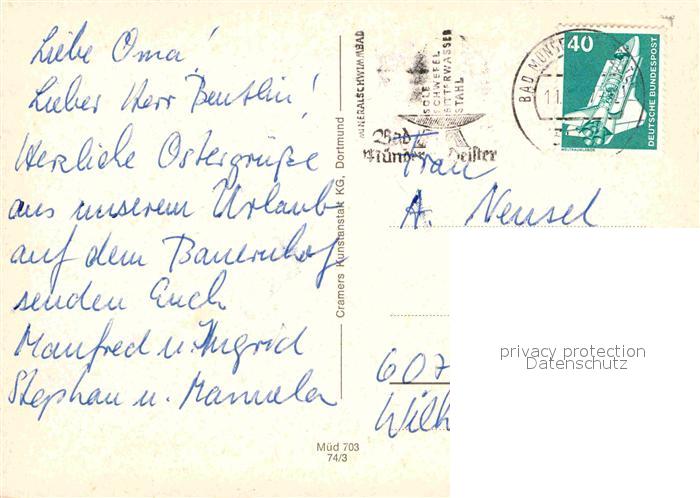 Liebe Oma!
Lieber Herr Beutlin!
Herzliche Ostergrüße
aus unserem Urlaub
auf dem Bauernhof
senden Euch
Manfred u. Ingrid
Stephan u. Manuela
Cramers Kunstanstalt KG, Dortmund
Müd 703
74/3
MINERALSCHWIMMBAD
SOLE
SCHWEFEL
BITTERWASSER
STAHL
Bad
Münder Deister
BAD MÜNDER
11.
40
DEUTSCHE BUNDESPOST
WELTRAUMLABOR
Frau
A. Neusel
607
Wilh
privacy protection
Datenschutz